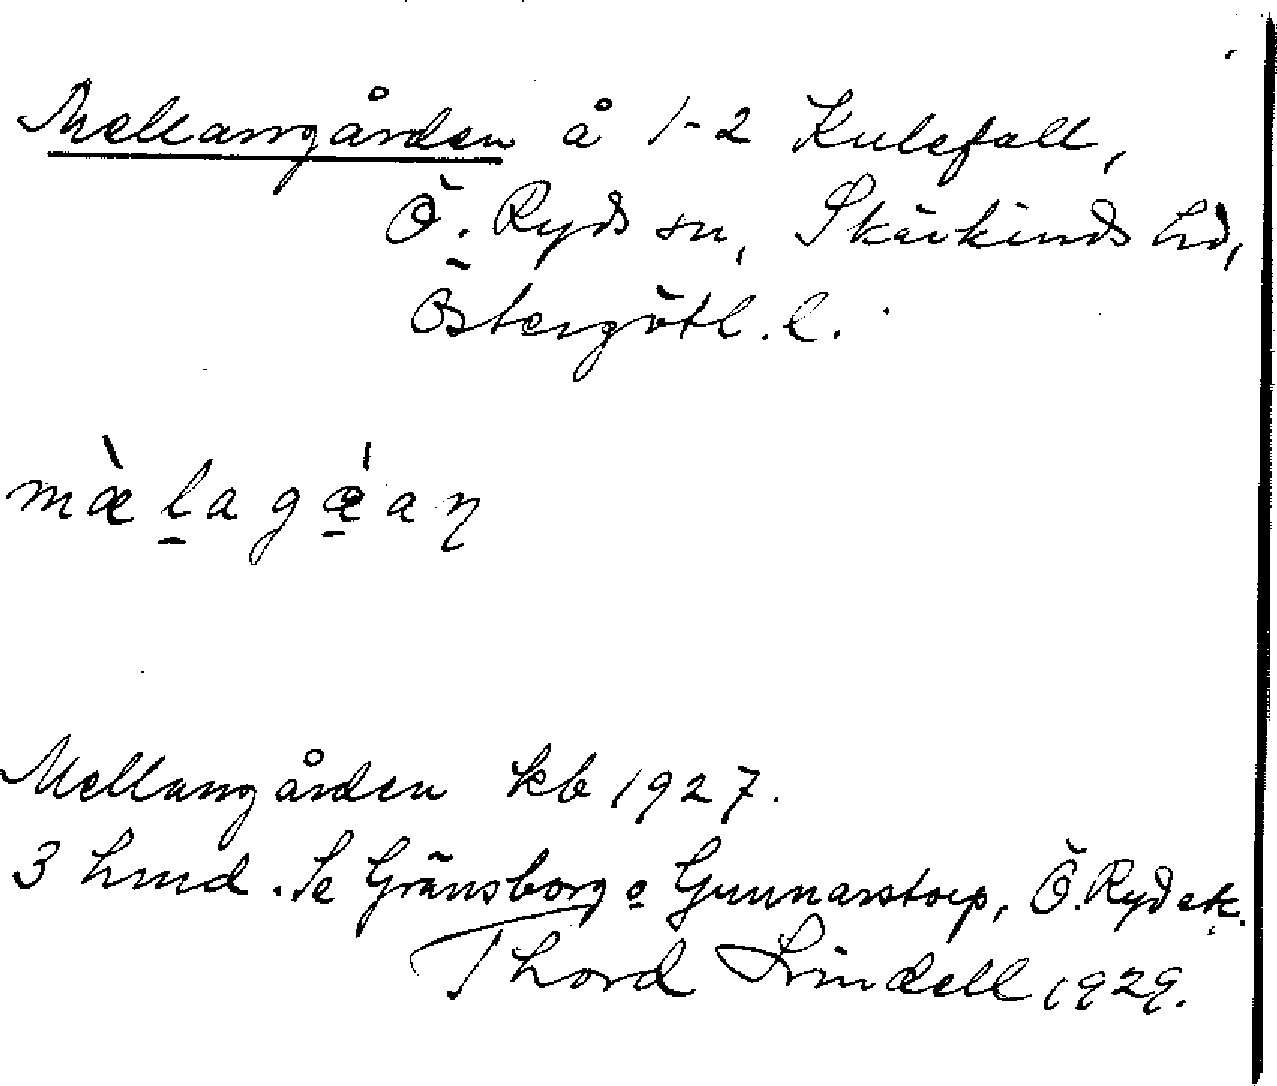 Mellangården å 1-2 Kulefall,
Ö. Ryds sn, Skärkinds hd,
Östergötl. l.
mæ̀l̠agǽ̠aŋ
Mellangården kb 1927.
3 hmd. Se Gränsborg o Gunnarstorp, Ö. Ryd etc.
Thord Lindell 1929.